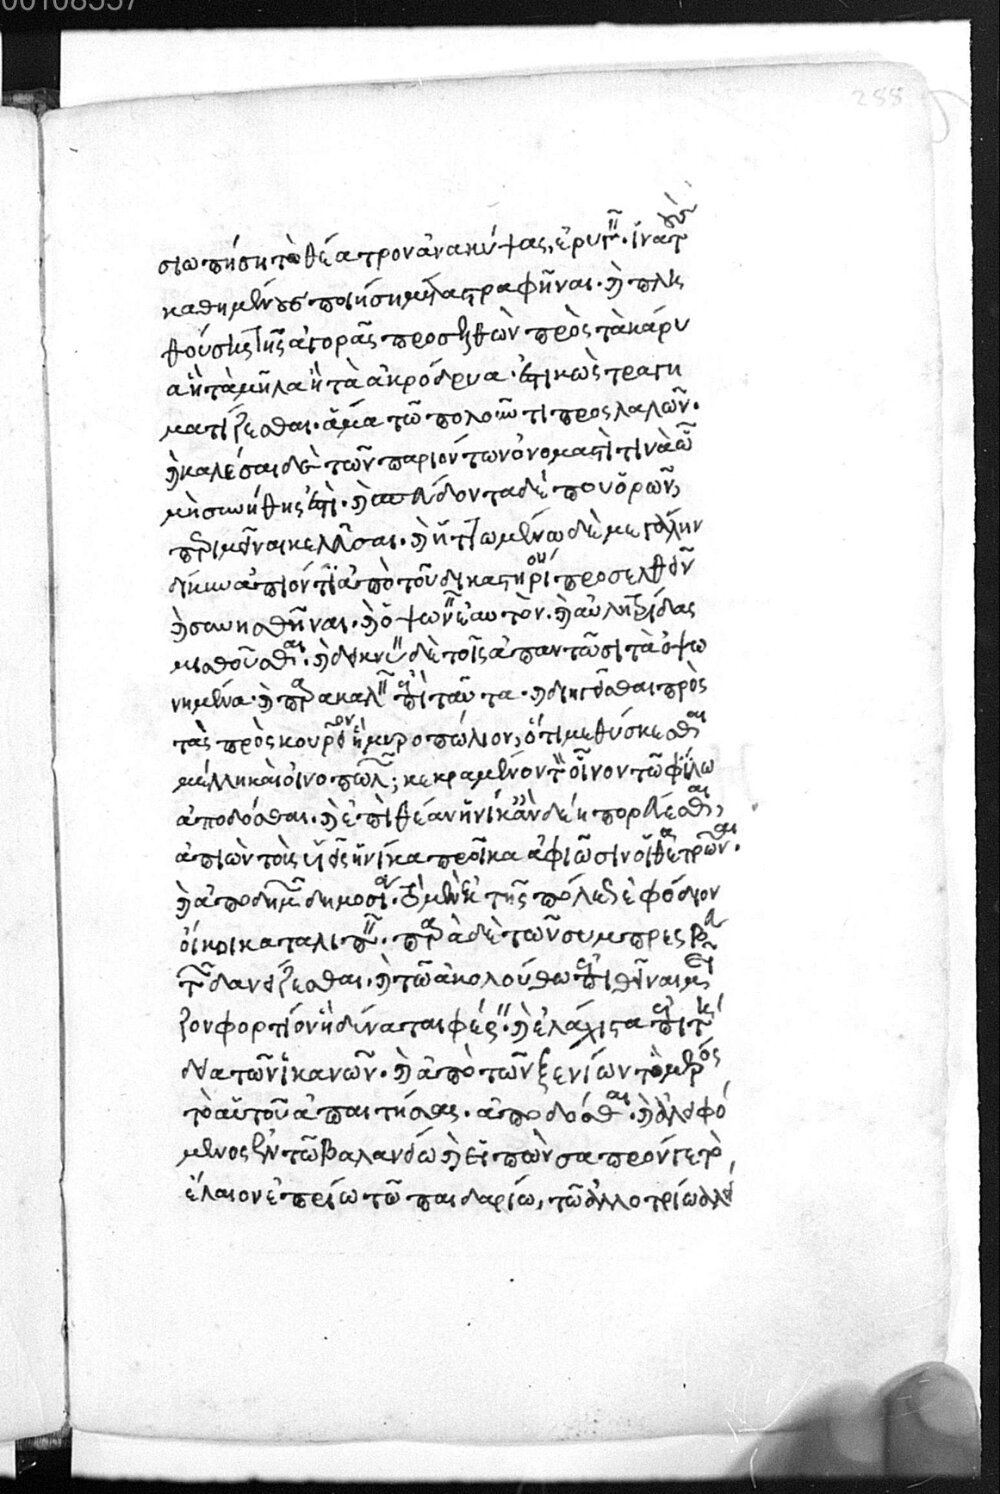 00108557
288
σιωπήση τὸ θέατρον ἀνακύψας, ἐρυγεῖν. ἵνα τοὺς
καθημένους ποιήση μεταστραφῆναι. καὶ πλη
θούσης τῆς ἀγορᾶς προσελθὼν πρὸς τὰ κάρυ
α ἢ τὰ μῆλα ἢ τὰ ἀκρόδρυα ἑστηκὼς τραγη
ματίζεσθαι. ἅμα τῶ πωλοῦντι προσλαλῶν.
καὶ καλέσαι δὲ τῶν παριόντων ὀνομαστί τινα ὧ
μὴ συνήθης ἐστί. καὶ σπεύδοντα δέ που ὁρῶν,
περιμεῖναι κελεῦσαι. καὶ ἡττωμένω δὲ μεγάλην
δίκην ἀπιόντι ἀπὸ τοῦ δικαστηρίου προσελθεῖν
καὶ συνησθῆναι. καὶ ὀψωνεῖν ἑαυτὸν. καὶ αὐλητρίδας
μισθοῦσθαι. καὶ δεικνύειν δὲ τοῖς ἀπαντῶσι τὰ ὀψω
νημένα. καὶ παρακαλεῖν ἐπὶ ταῦτα. καὶ διηγεῖσθαι πρὸς
τὰς πρὸς κουρεῖον ἢ μυροπώλιον, ὅτι μεθύσκεσθαι
μέλλη καὶ οἰνοπωλεῖν; κεκραμένον τὸν οἶνον τῶ φίλω
ἀποδόσθαι. καὶ ἐπὶ θέαν ἡνίκα ἂν δέη πορεύεσθαι,
ἀπιὼν τοὺς υἱεῖς ἡνίκα προῖκα ἀφιῶσιν οἱ θεατρῶναι.
καὶ ἀποδημῶν δημοσία. τὸ μὲν ἐκ τῆς πόλεως ἐφόδιον
οἴκοι καταλιπεῖν. παρὰ δὲ τῶν συμπρεσβευ
τῶν δανείζεσθαι. καὶ τῶ ἀκολούθω ἐπιθεῖναι μεῖ
ζον φορτίον ἢ δύναται φέρειν. καὶ ἐλάχιστα ἐπιτή
δεια τῶν ἱκανῶν. καὶ ἀπὸ τῶν ξενίων τὸ μέρος
τὸ αὑτοῦ ἀπαιτήσας. ἀποδόσθαι. καὶ ἀλειφό
μενος ἐν τῶ βαλανείω καὶ εἴπὼν σαπρόν γε τὸ
ἔλαιον ἐπρίω τῶ παιδαρίω, τῶ ἀλλοτρίω ἀλεί